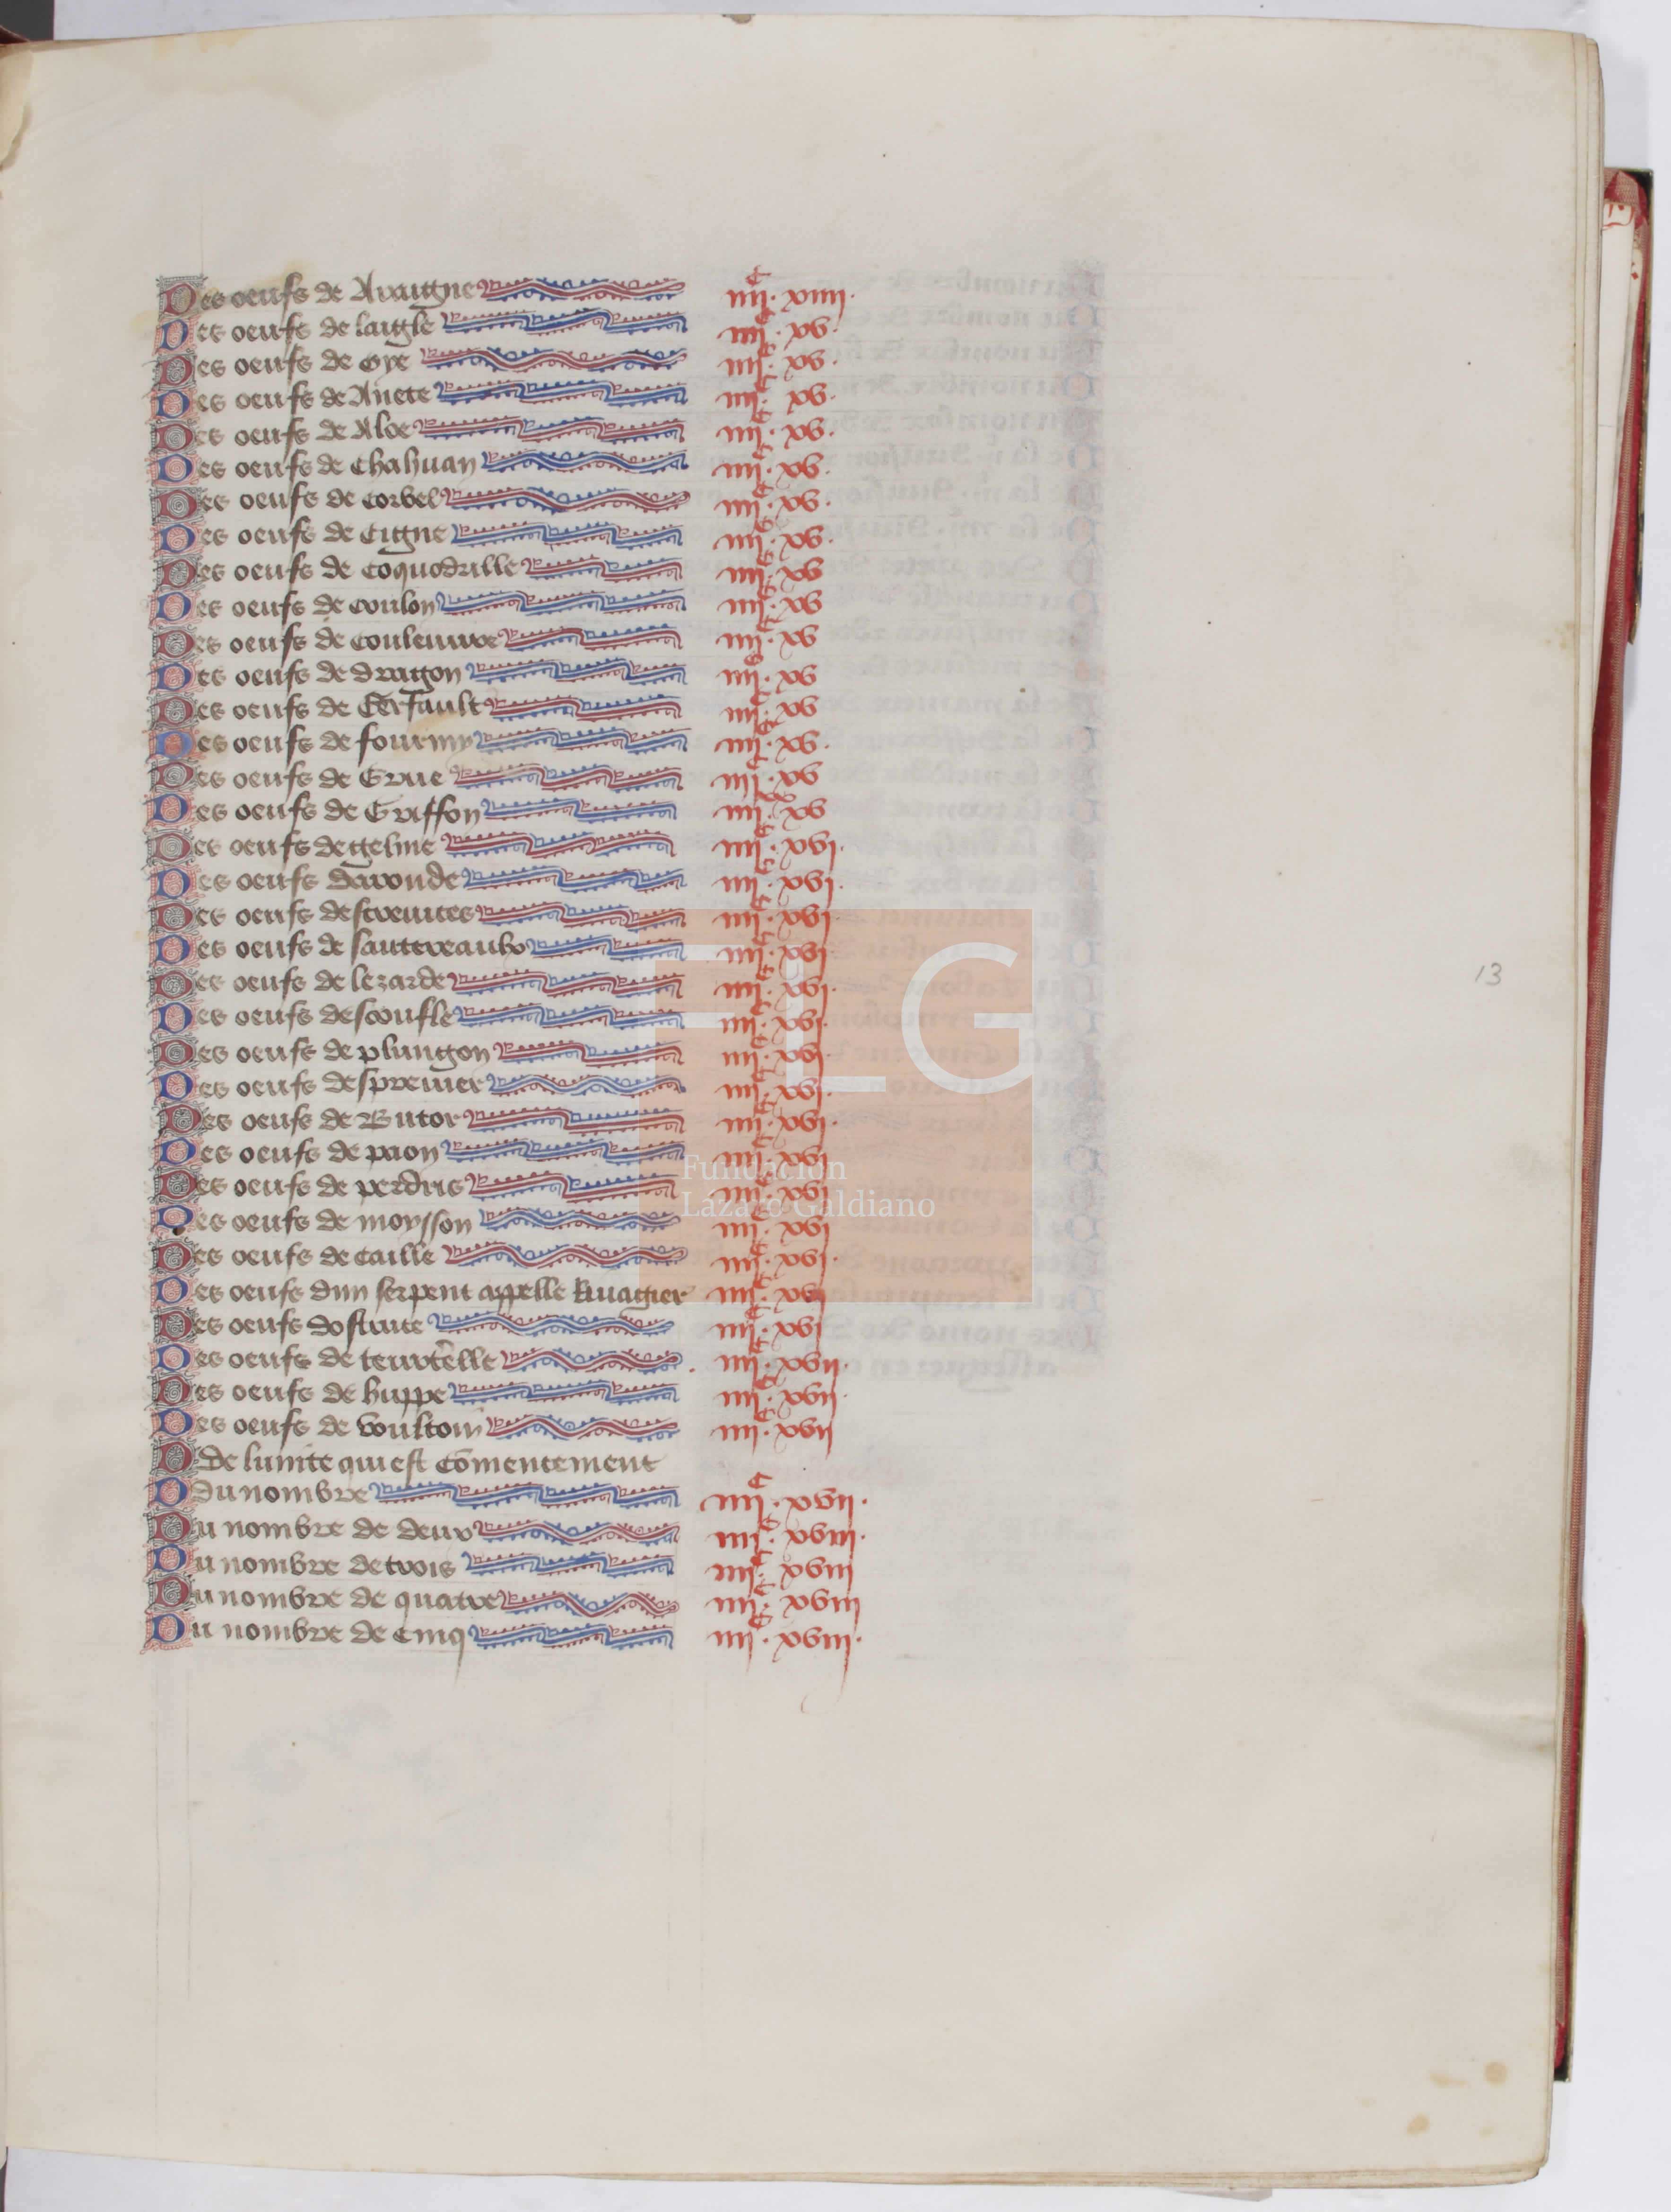 Des oeufs de Araigne iiii c. xiiii.
Des oeufs de laigle iiii c. xv.
Des oeufs de oye iiii c. xv.
Des oeufs de Anete iiii c. xv.
Des oeufs de Aloe iiii c. xv.
Des oeufs de Chahuan iiii c. xv.
Des oeufs de corbel iiii c. xv.
Des oeufs de Cigne iiii c. xv.
Des oeufs de coquodrille iiii c. xv
Des oeufs de coulon iiii c. xv
Des oeufs de couleuure iiii c. xv
Des oeufs de dragon iiii c. xv
Des oeufs de Gerfault iiii c. xv
Des oeufs de fourmy iiii c. xv.
Des oeufs de Grue iiii c. xv
Des oeufs de Griffon iiii xx. xv
Des oeufs de geline iiii c. xvi.
Des oeufs daronde iiii c. xvi.
Des oeufs descreuices iiii c. xvi
Des oeufs de sautereaulx iiii c. xvi
Des oeufs de lezarde iiii c. xvi.
Des oeufs descoufle iiii c. xvi.
Des oeufs de plungon iiii c. xvi.
Des oeufs despreuier iiii c. xvi.
Des oeufs de Butor iiii c. xvi.
Des oeufs de paon iiii c. xvi
Des oeufs de perdris iiii c. xvi
Des oeufs de moysson iiii c. xvi
Des oeufs de caille iiii c. xvi.
Des oeufs dun serpent appelle iiii c. xvi
Des oeufs dostruce iiii c. xvi
Des oeufs de teurterelle iiii c. xvii.
Des oeufs de huppe iiii c. xvii.
Des oeufs de voultour iiii c. xvii
D de lunite qui est Comencement
D du nombre iiii c. xvii.
Du nombre de deux iiii c. xviii.
Du nombre de trois iiii c. xviii
Du nombre de quatre iiii c. xviii
Du nombre de cinq iiii c. xviii.
13
FLG
Fundación
Lázaro Galdiano